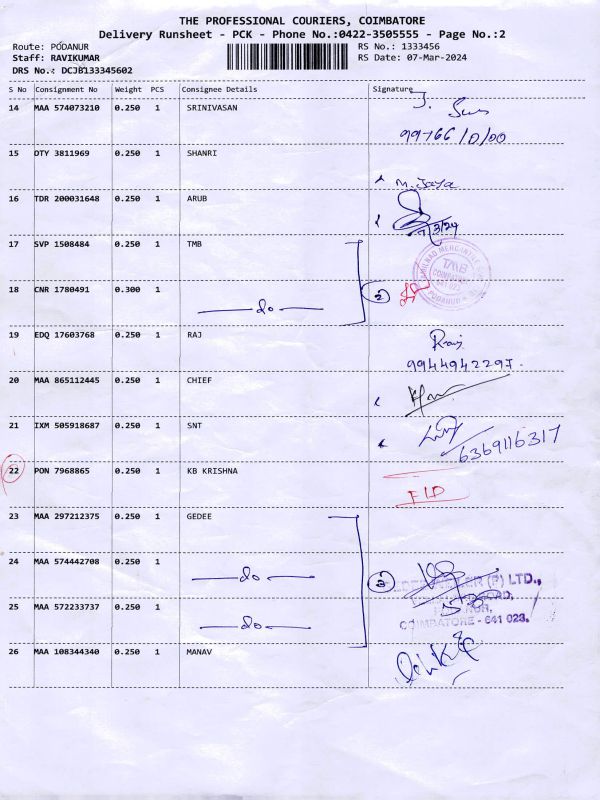 THE PROFESSIONAL COURIERS, COIMBATORE
Delivery Runsheet - PCK - Phone No.:0422-3505555 - Page No.:2
Route: PODANUR RS No.: 1333456
Staff: RAVIKUMAR RS Date: 07-Mar-2024
DRS No.: DCJB133345602
S No Consignment No Weight PCS Consignee Details Signature
14 MAA 574073210 0.250 1 SRINIVASAN
15 DTY 3811969 0.250 1 SHANRI
M. Jaya
16 TDR 200031648 0.250 1 ARUB
7/3/24
17 SVP 1508484 0.250 1 TMB
TMB
COIMBATORE
641 023
PODANUR
18 CNR 1780491 0.300 1
do 2
19 EDQ 17603768 0.250 1 RAJ Raj
9944942297.
20 MAA 865112445 0.250 1 CHIEF
21 IXM 505918687 0.250 1 SNT
6369116317
22 PON 7968865 0.250 1 KB KRISHNA
23 MAA 297212375 0.250 1 GEDEE
24 MAA 574442708 0.250 1
do 3
(P) LTD.,
25 MAA 572233737 0.250 1
do
COIMBATORE - 641 023.
26 MAA 108344340 0.250 1 MANAV